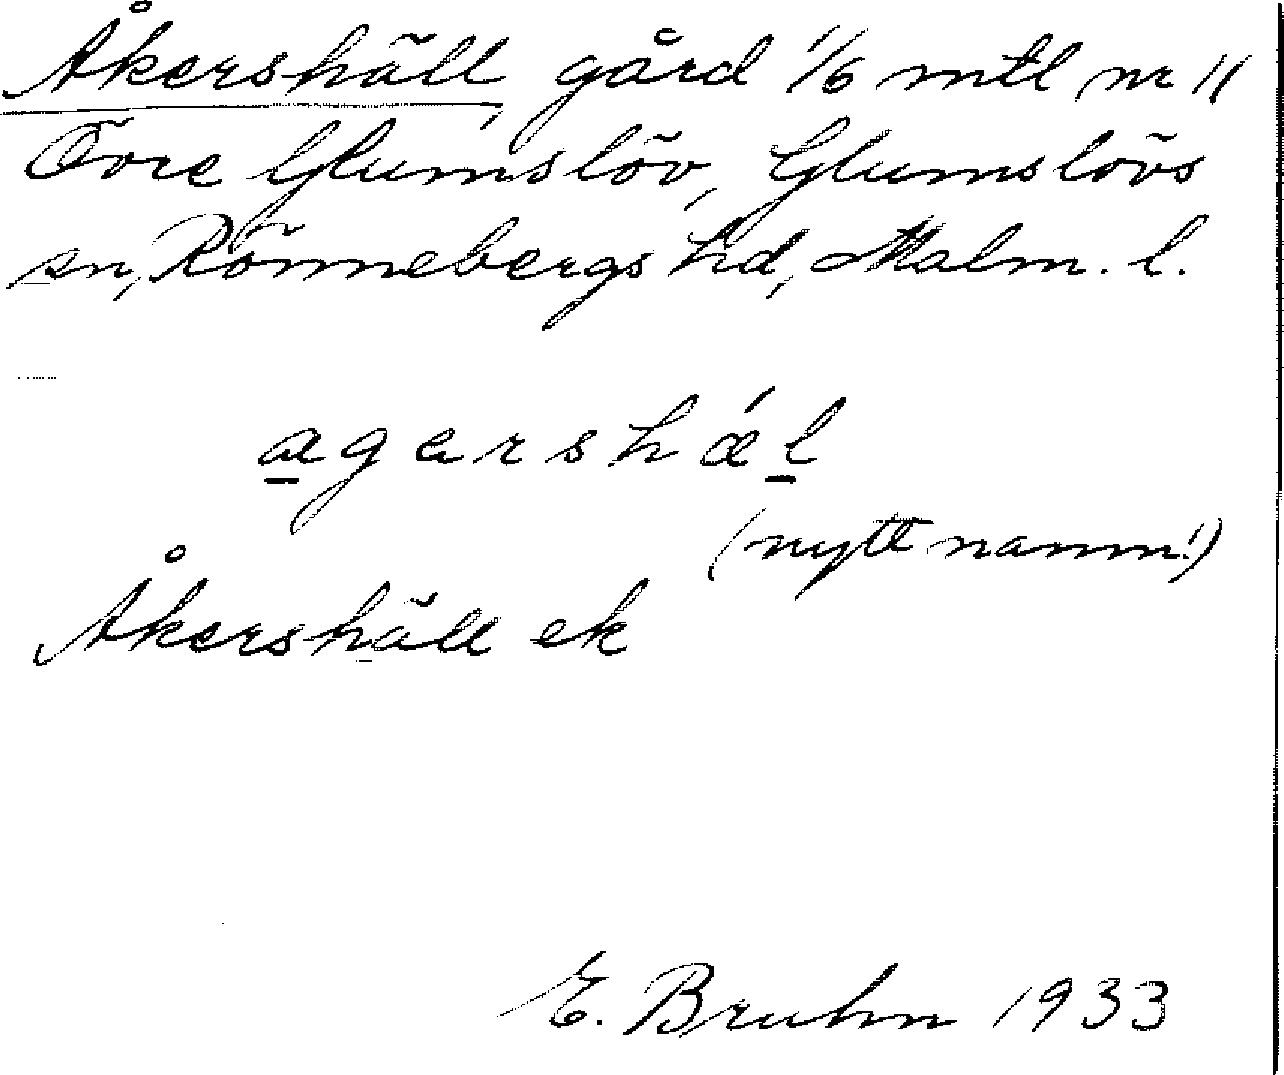 Åkershäll, gård 1/6 mtl nr 11
Övre Glumslöv, Glumslövs
sn, Rönnebergs hd, Malm. l.
agarshǽl
(nytt namn!)
Åkershäll ek
E. Bruhn 1933